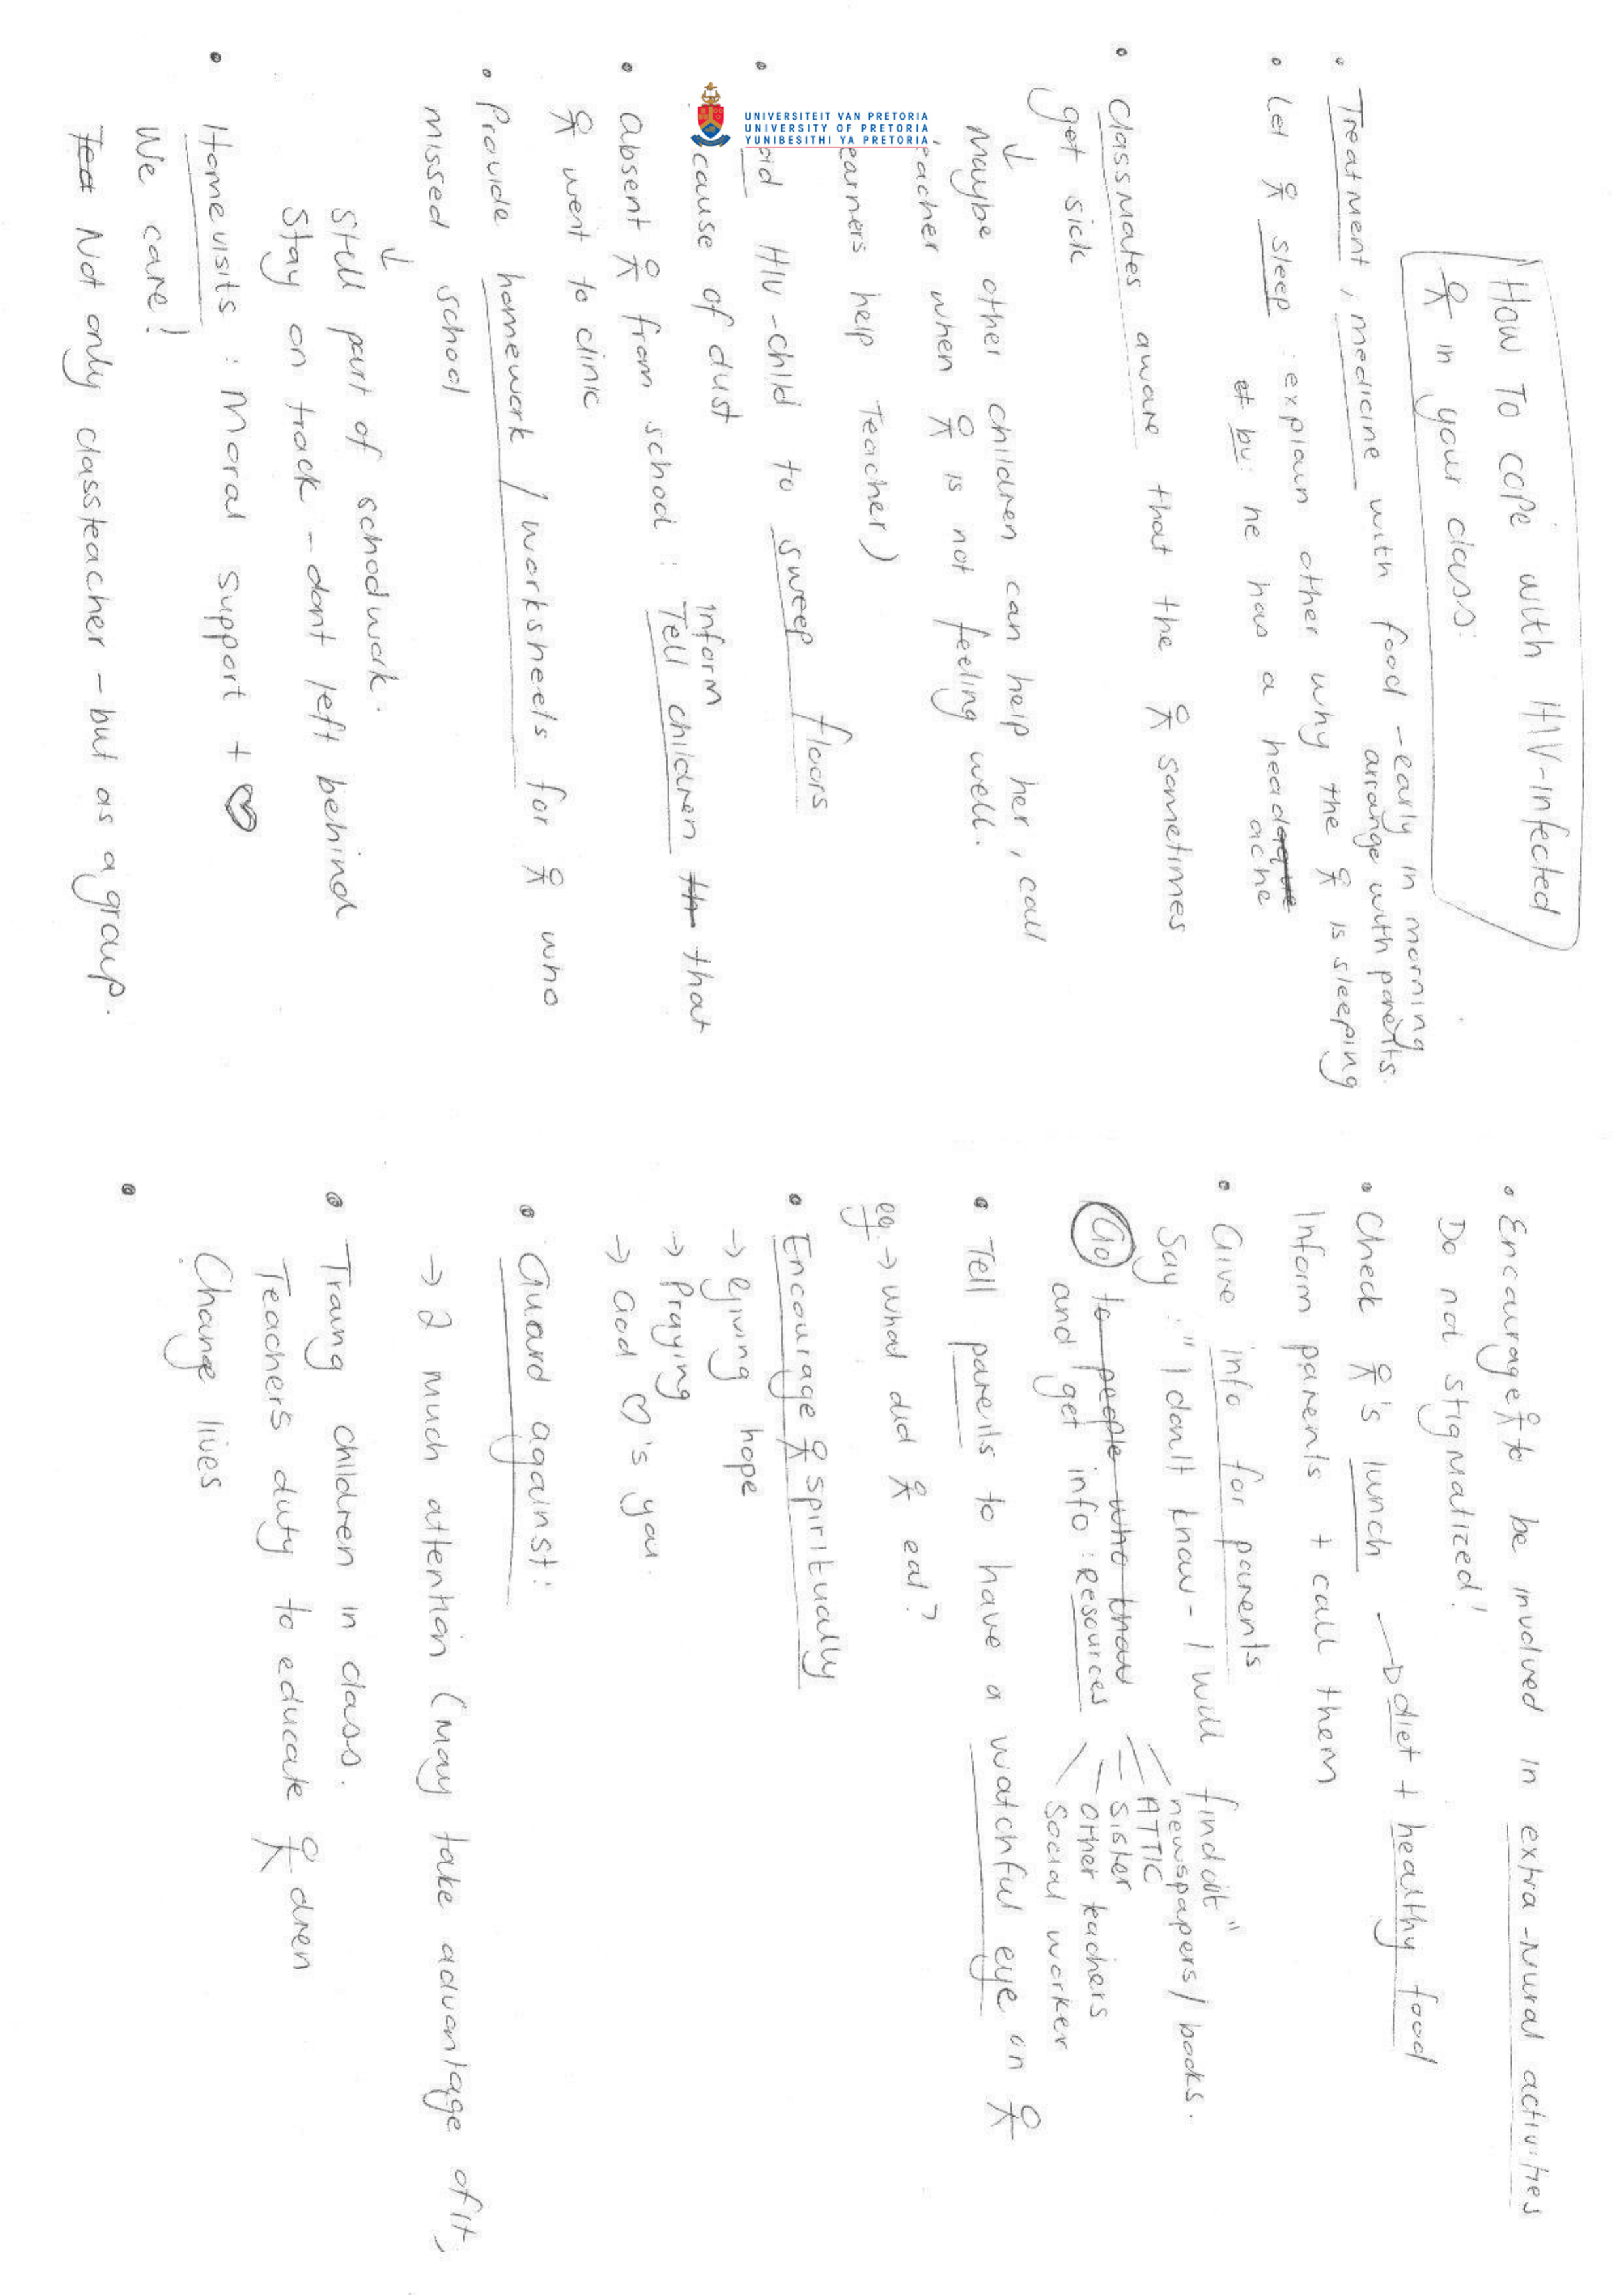 How To cope with HIV-infected
in your class:
• Treatment, medicine with food - early in morning
arrange with parents.
• Let sleep : explain other why the is sleeping
by: he has a head
ache
• Classmates aware that the sometimes
get sick
↓
Maybe other children can help her, call
eacher when is not feeling well.
earners help Teacher)
• oid HIV-child to sweep floors
cause of dust
• absent from school : Tell children that
inform
went to clinic
• Provide homework / worksheets for who
missed school
↓
Still part of schoolwork.
Stay on track - dont left behind
• Homevisits : Moral support + ♡
We care!
Not only classteacher - but as a group.
UNIVERSITEIT VAN PRETORIA
UNIVERSITY OF PRETORIA
YUNIBESITHI YA PRETORIA
• Encourage to be involved in extra-mural activities
Do not stigmatized!
• Check 's lunch → diet + healthy food
Inform parents + call them
• Give info for parents
Say : "I don't know - I will find out"
Go to people who know
and get info : resources
newspapers / books.
ATTIC
Sister
other teachers
Social worker
• Tell parents to have a watchful eye on
eg. → what did eat?
• Encourage spiritually
→ giving hope
→ Praying
→ God ♡'s you.
• Guard against:
→ 2 much attention (may take advantage of it,
• Traing children in class.
Teachers duty to educate dren
Change lives
•